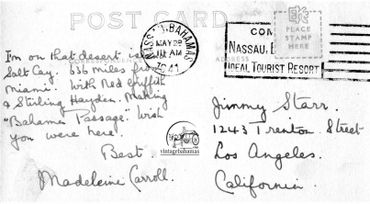 POST CARD
NASSAU, BAHAMAS
MAY 22
AM
1941
NASSAU, B
IDEAL TOURIST RESORT
PLACE
STAMP
HERE
I'm on that desert is
Salt Cay. 335 miles
Miami. With Red Griffith
& Stirling Hayden. Making
"Bahama Passage." Wish
you were here.
Best.
Madeleine Carroll.
vintagebahamas
Jimmy Starr.
1243 Trenton Street
Los Angeles.
California.